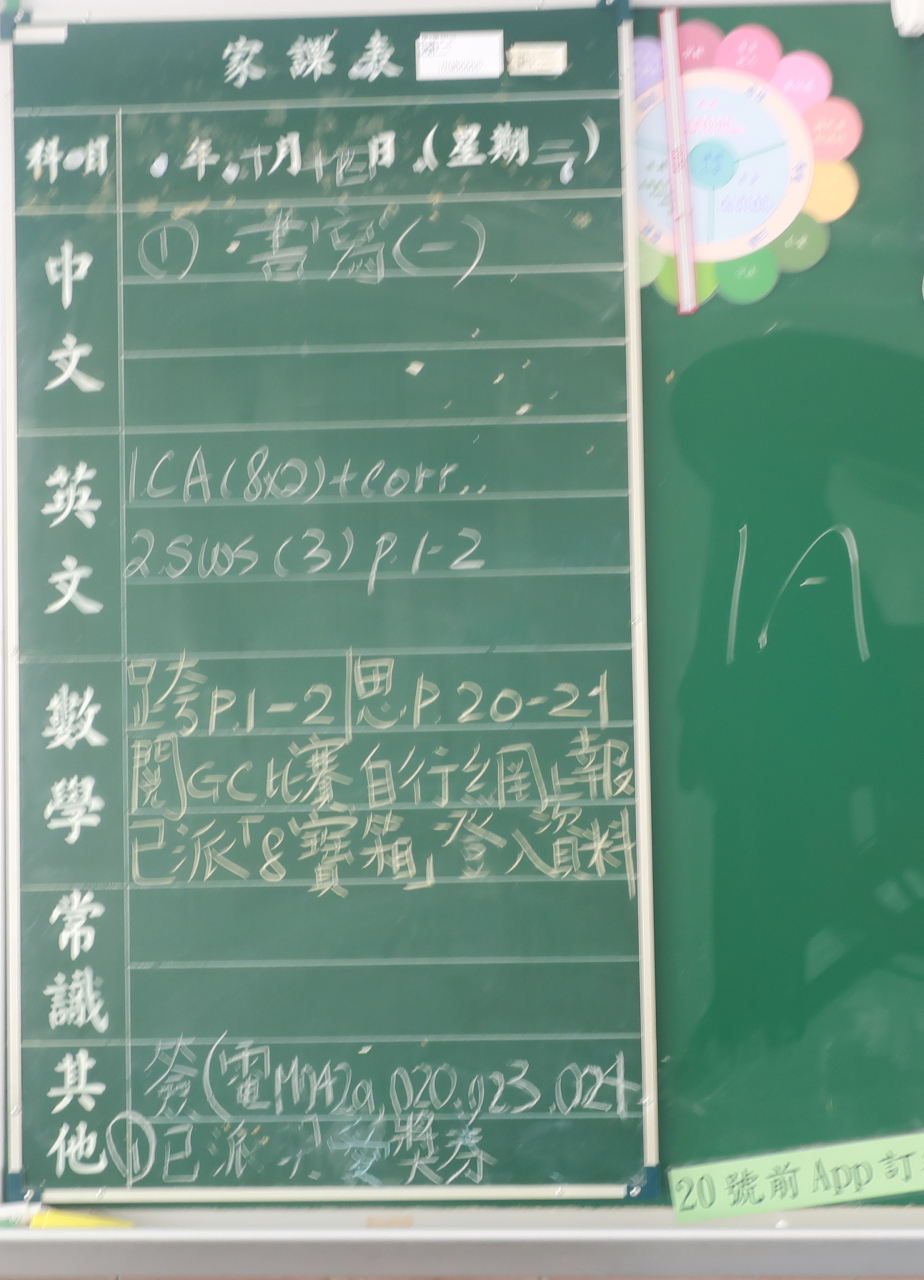 家課表
科目 年 月 日 (星期二)
中文
① 書寫(一)
英文
1.CA(8xQ)+corr.
2.SWS (3) p.1-2
數學
跨P.1-2 思P.20-21
閱GC比賽自行網上報
已派「8寶箱」登入資料
常識
其他
簽(電 020.023.024
① 已派 獎券
1A
20號前App訂